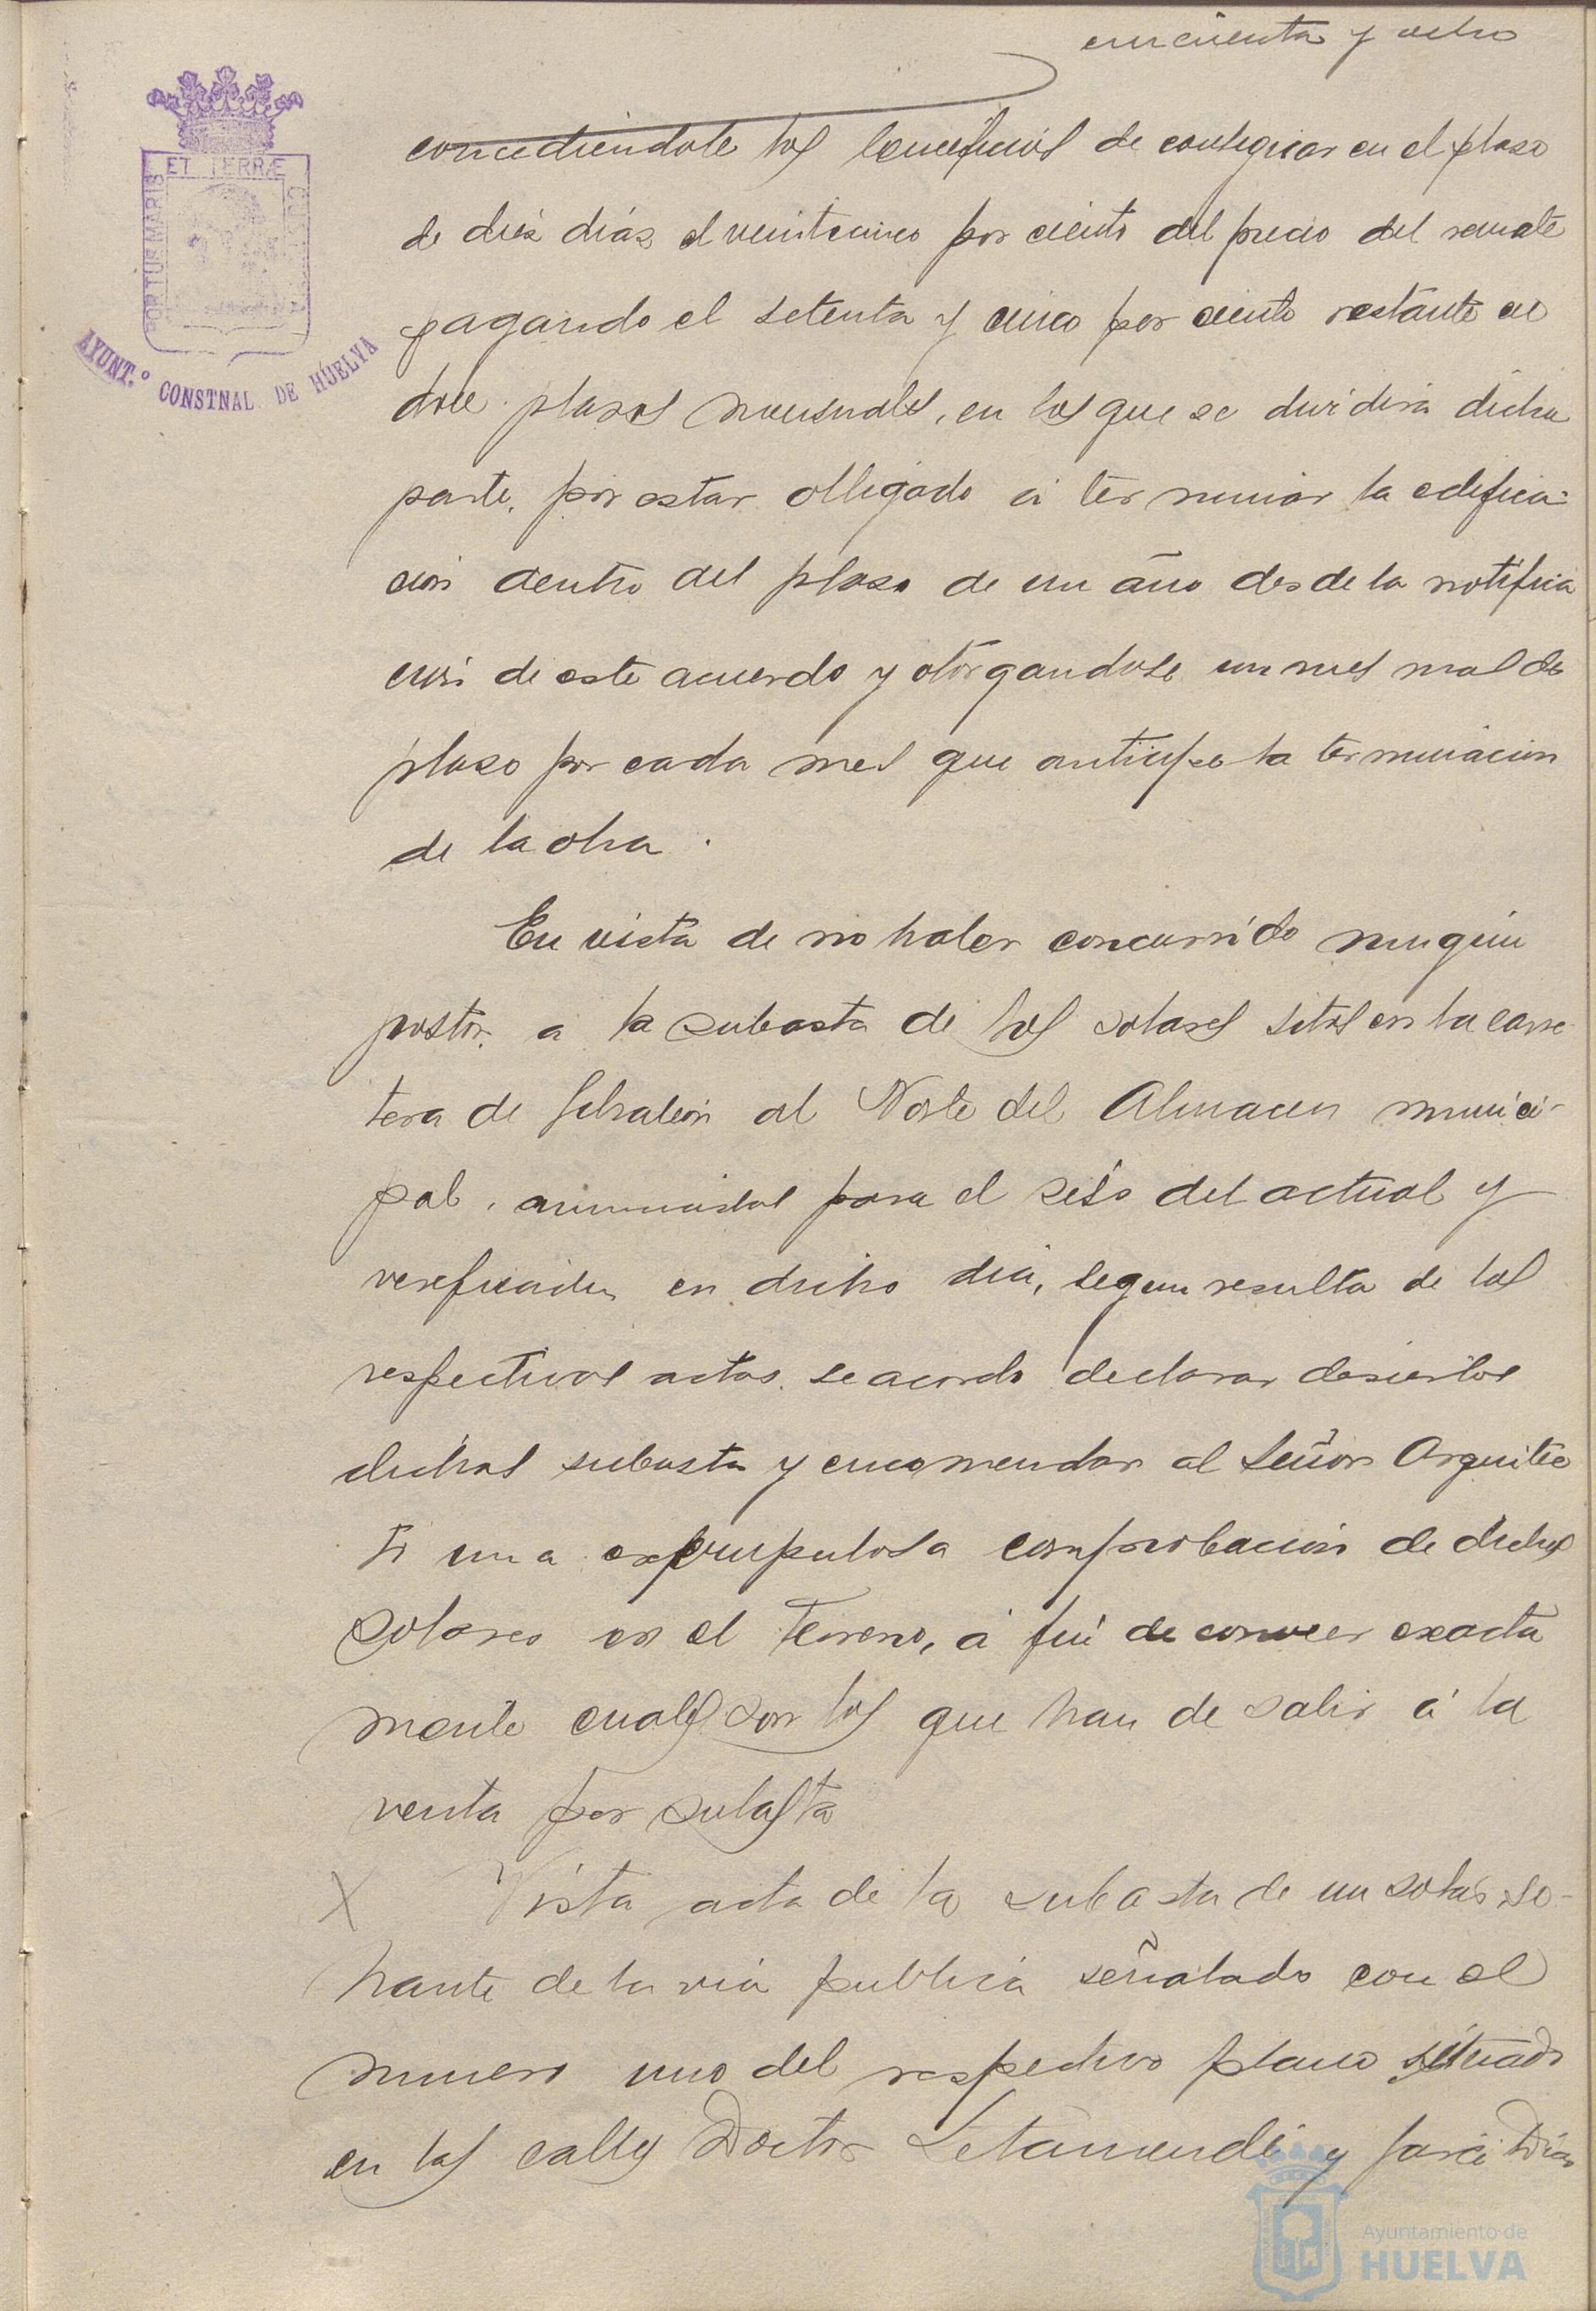 cincuenta y ocho
PORTUS MARIS
ET TERRÆ
AYUNT.º CONSTNAL DE HUELVA
concediendole los beneficios de consignar en el plazo
de diez dias el veinticinco por ciento del precio del remate
pagando el setenta y cinco por ciento restante en
doce plazos mensuales, en los que se dividira dicha
parte, por estar obligado á terminar la edifica-
cion dentro del plazo de un año desde la notifica
cion de este acuerdo y otorgandole un mes mas de
plazo por cada mes que anticipe la terminacion
de la obra.
En vista de no haber concurrido ningun
postor, a la subasta de los solares sitos en la carre-
tera de Gibraleon al Norte del Almacen munici-
pal, anunciadas para el seis del actual y
verificadas en dicho dia, segun resulta de las
respectivas actas, se acordo declarar desiertas
dichas subastas y encomendar al Señor Arquitec
to una escrupulosa comprobacion de dichos
solares en el terreno, á fin de conocer exacta
mente cuales son los que han de salir á la
venta por subasta
X Vista acta de la subasta de un solar so-
brante de la via publica señalado con el
numero uno del respectivo plano situado
en las calles Doctor Letamendi y Garci Diaz
Ayuntamiento de
HUELVA